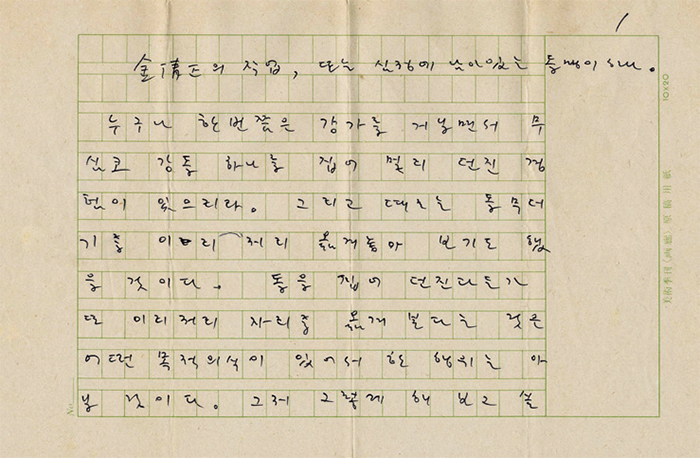 1
金淸正의 작업, 또는 심장에 남아있는 돌멩이 하나.
누구나 한번쯤은 강가를 거닐면서 무
심코 강돌 하나를 집어 멀리 던진 경
험이 있으리라. 그리고 때로는 돌무더
기를 이리 저리 옮겨놓아 보기도 했
을 것이다. 돌을 집어 던진다든가
또 이리저리 자리를 옮겨 본다는 것은
어떤 목적의식이 있어서 한 행위는 아
닐 것이다. 그저 그렇게 해 보고 싶
No.
10×20
美術季刊 原稿用紙